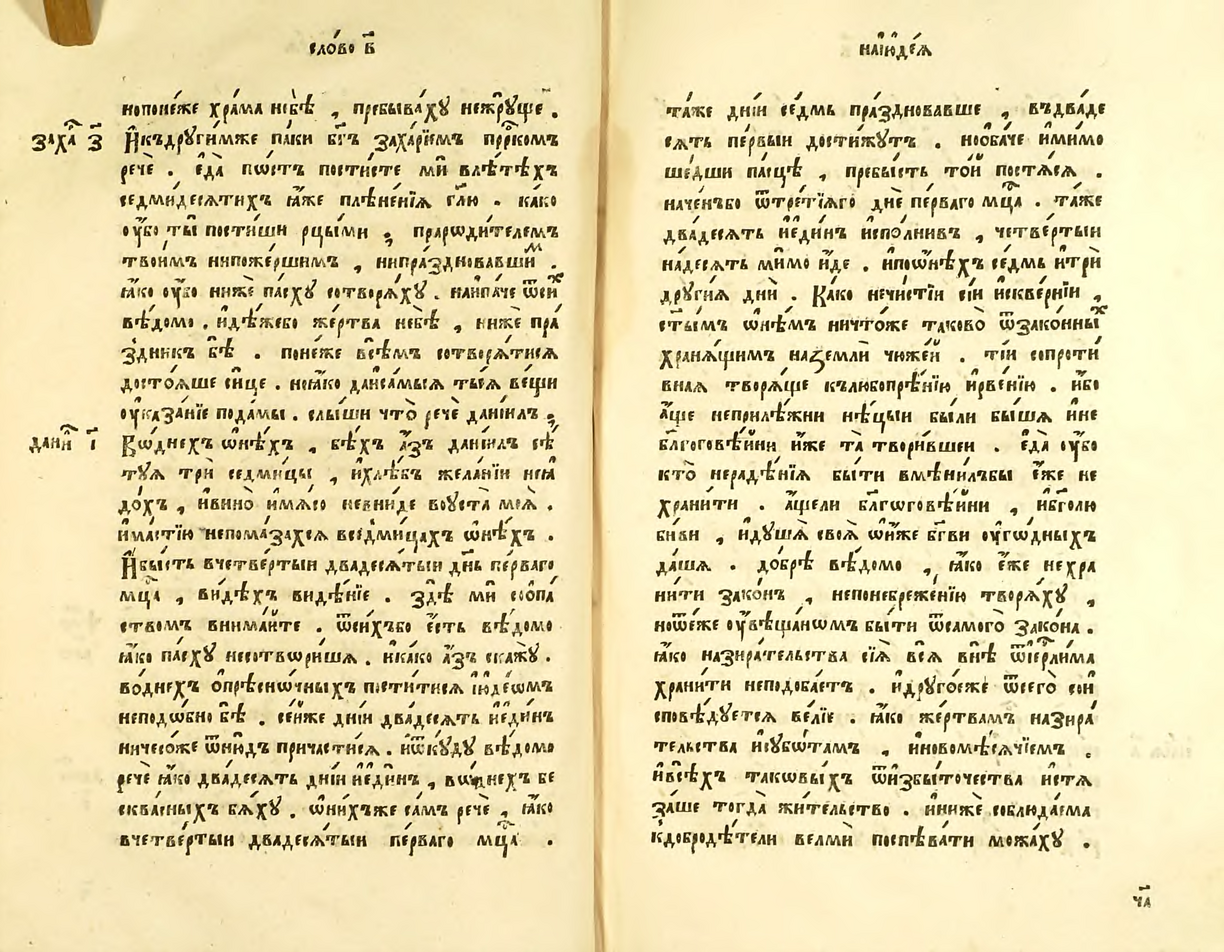 сло́во в҃
нопоне́же хра́ма неб̾ѣ̀ , пребыва́хꙋ нежрꙋ́ще .
заха́ з҃
И҆къдрꙋги́мже па́ки бг҃ъ заха́рїемъ прⷪ҇ркомъ
речѐ . є҆да̀ по́стъ пости́сте мѝ влѣ́тѣхъ
седмидесѧ́тихъ ꙗ҆́же плѣне́нїѧ гл҃ю . ка́ко
ᲂу҆́бо ты̀ пости́ши рцы́ми ; прароди́телемъ
твои́мъ нипоже́ршимъ , нипра́здновавшиⷨ .
ꙗ҆́ко ᲂу҆́бо ниже па́схꙋ сотворѧ́хꙋ . наипа́че ѿси́ⷯ
вѣ́домо . и҆дѣ́жебо же́ртва небѣ̀ , ниже пра́
здникъ бѣ̀ . поне́же всѣ́мъ сотворѧ́тисѧ
досто́ѧше си́це . ноꙗ҆́ко даи҆са́мыѧ ты́ѧ ве́щи
ᲂу҆каза́нїе пода́мы . слы́ши что̀ речѐ данїи́лъ ;
дани́ⷧ і҃
Во́днехъ ѡ҆нѣ́хъ , бѣ́хъ а҆́зъ данїи́лъ сѣ́
тꙋѧ трѝ седми́цы , и҆хлѣ́бъ жела́нїи неꙗ҆
до́хъ , и҆вино̀ и҆мѧ́со невни́де воᲂу҆ста̀ моѧ̀ .
и҆ма́стїю непомаза́хсѧ всє́дмицахъ ѡ҆нѣ́хъ .
И҆бы́сть вчетве́ртыи двадесѧ́тыи дн҃ь пе́рваго
мцⷭ҇а , ви́дѣхъ видѣ́нїе . здѣ̀ мѝ соо҆па́
ствомъ внима́йте . ѿси́хъбо є҆́сть вѣ́домо
ꙗ҆́ко па́схꙋ несотвори́шѧ . и҆ка́ко а҆́зъ скажꙋ̀ .
во́днехъ ѡ҆прѣсно́чныхъ пости́тисѧ і҆ꙋде́ѡмъ
неподо́бно бѣ̀ . се́йже днїи два́десѧть и҆є҆ди́нъ
ничесо́же ѿню́дъ причасти́сѧ . и҆ѿкꙋ́дꙋ вѣ́домо
речѐ ꙗ҆́ко два́десѧть днїи и҆є҆ди́нъ , во́днехъ бе
сква́сныхъ бѧ́хꙋ . ѡ҆ни́хъже са́мъ речѐ , ꙗ҆́ко
вчетве́ртыи двадесѧ́тыи пе́рваго мцⷭ҇а .
наі҆ꙋде́ѧ
та́же днїи се́дмь пра́здновавше , въдва́де
сѧть пе́рвыи дости́жꙋтъ . нооба́че и҆мимо
ше́дши па́сцѣ , пребы́сть то́й постѧ́сѧ .
наче́нъбо ѿтре́тїѧго днѐ пе́рваго мцⷭ҇а . та́же
два́десѧть и҆є҆ди́нъ и҆спо́лнивъ , четве́ртыи
на́десѧть ми́мо и҆́де . и҆поѻ҆нѣ́хъ се́дмь и҆трѝ
дрꙋги́ѧ днѝ . Ка́ко нечи́стїи сі́и и҆скве́рнїи ,
ст҃ы́мъ ѡ҆нѣ́мъ ничто́же таково̀ ѿзако́нныⷯ
хранѧ́щимъ наꙁемлѝ чꙋже́й . ті́и сопроти́
внаѧ творѧ́ще къл̾юбопрѣ́нїю и҆рве́нїю . и҆́бо
а҆́ще неприлѣ́жни нѣ́цыи бы́ли бы́шѧ и҆не
бл҃гоговѣ́йни и҆́же та̀ твори́вшеи . є҆да̀ ᲂу҆́бо
кто̀ нерадѣ́нїѧ бы́ти вмѣни́лъбы є҆́же не
храни́ти . а҆́щели бл҃гоговѣ́йни , и҆бг҃олю
би́ви , и҆дꙋ́шѧ своѧ̀ ѡ҆и҆́же бг҃ви ᲂу҆го́дныхъ
да́шѧ . до́брѣ вѣ́домо , ꙗ҆́ко є҆́же нехра
ни́ти зако́нъ , непонебреже́нїю творѧ́хꙋ ,
ноѿе́же ᲂу҆вѣща́номъ бы́ти ѿсамого̀ зако́на .
ꙗ҆́ко назира́тельства сїѧ̀ всѧ̀ внѣ̀ ѿі҆ерⷭ҇ли́ма
храни́ти неподоба́етъ . и҆дрꙋго́еже ѿсего̀ сои
сповѣ́дꙋетсѧ ве́лїе . ꙗ҆́ко же́ртвамъ назира́
тельства и҆сꙋбо́тамъ , и҆новомѣ́сѧчїемъ .
и҆всѣ́хъ таковы́хъ ѿи҆збы́точества и҆стѧ
за́ше тогда̀ жи́тельство . и҆ниже соблюда́ема
кдоброде́тели велмѝ поспѣва́ти можа́хꙋ .
ч҃а